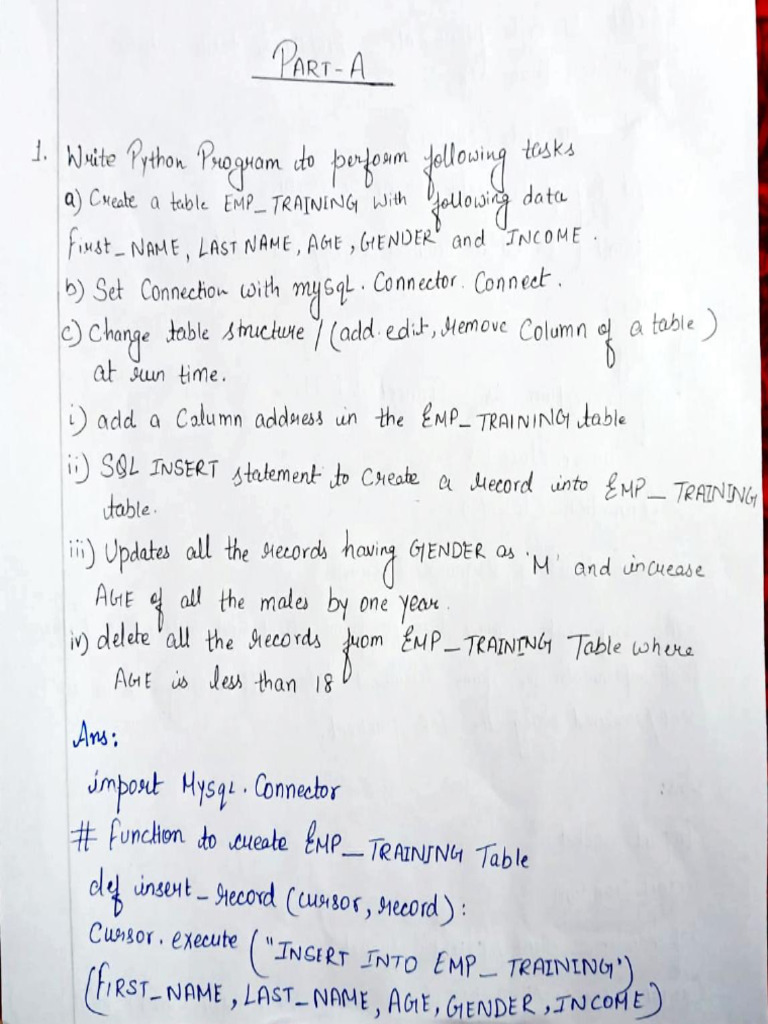 PART-A
1. Write Python Program to perform following tasks
a) Create a table EMP_TRAINING with following data
First_NAME, LAST NAME, AGE, GENDER and INCOME.
b) Set Connection with mysqL. Connector. Connect.
c) Change table structure / (add. edit, remove Column of a table)
at run time.
i) add a Column address in the EMP_TRAINING table
ii) SQL INSERT statement to Create a record into EMP_TRAINING
table.
iii) Updates all the records having GENDER as 'M' and increase
AGE of all the males by one year.
iv) delete all the records from EMP_TRAINING Table where
AGE is less than 18
Ans:
import MysqL. Connector
# Function to create EMP_TRAINING Table
def insert_record (cursor, record):
Cursor. execute ("INSERT INTO EMP_ TRAINING")
(FIRST_NAME, LAST_NAME, AGE, GENDER, INCOME)